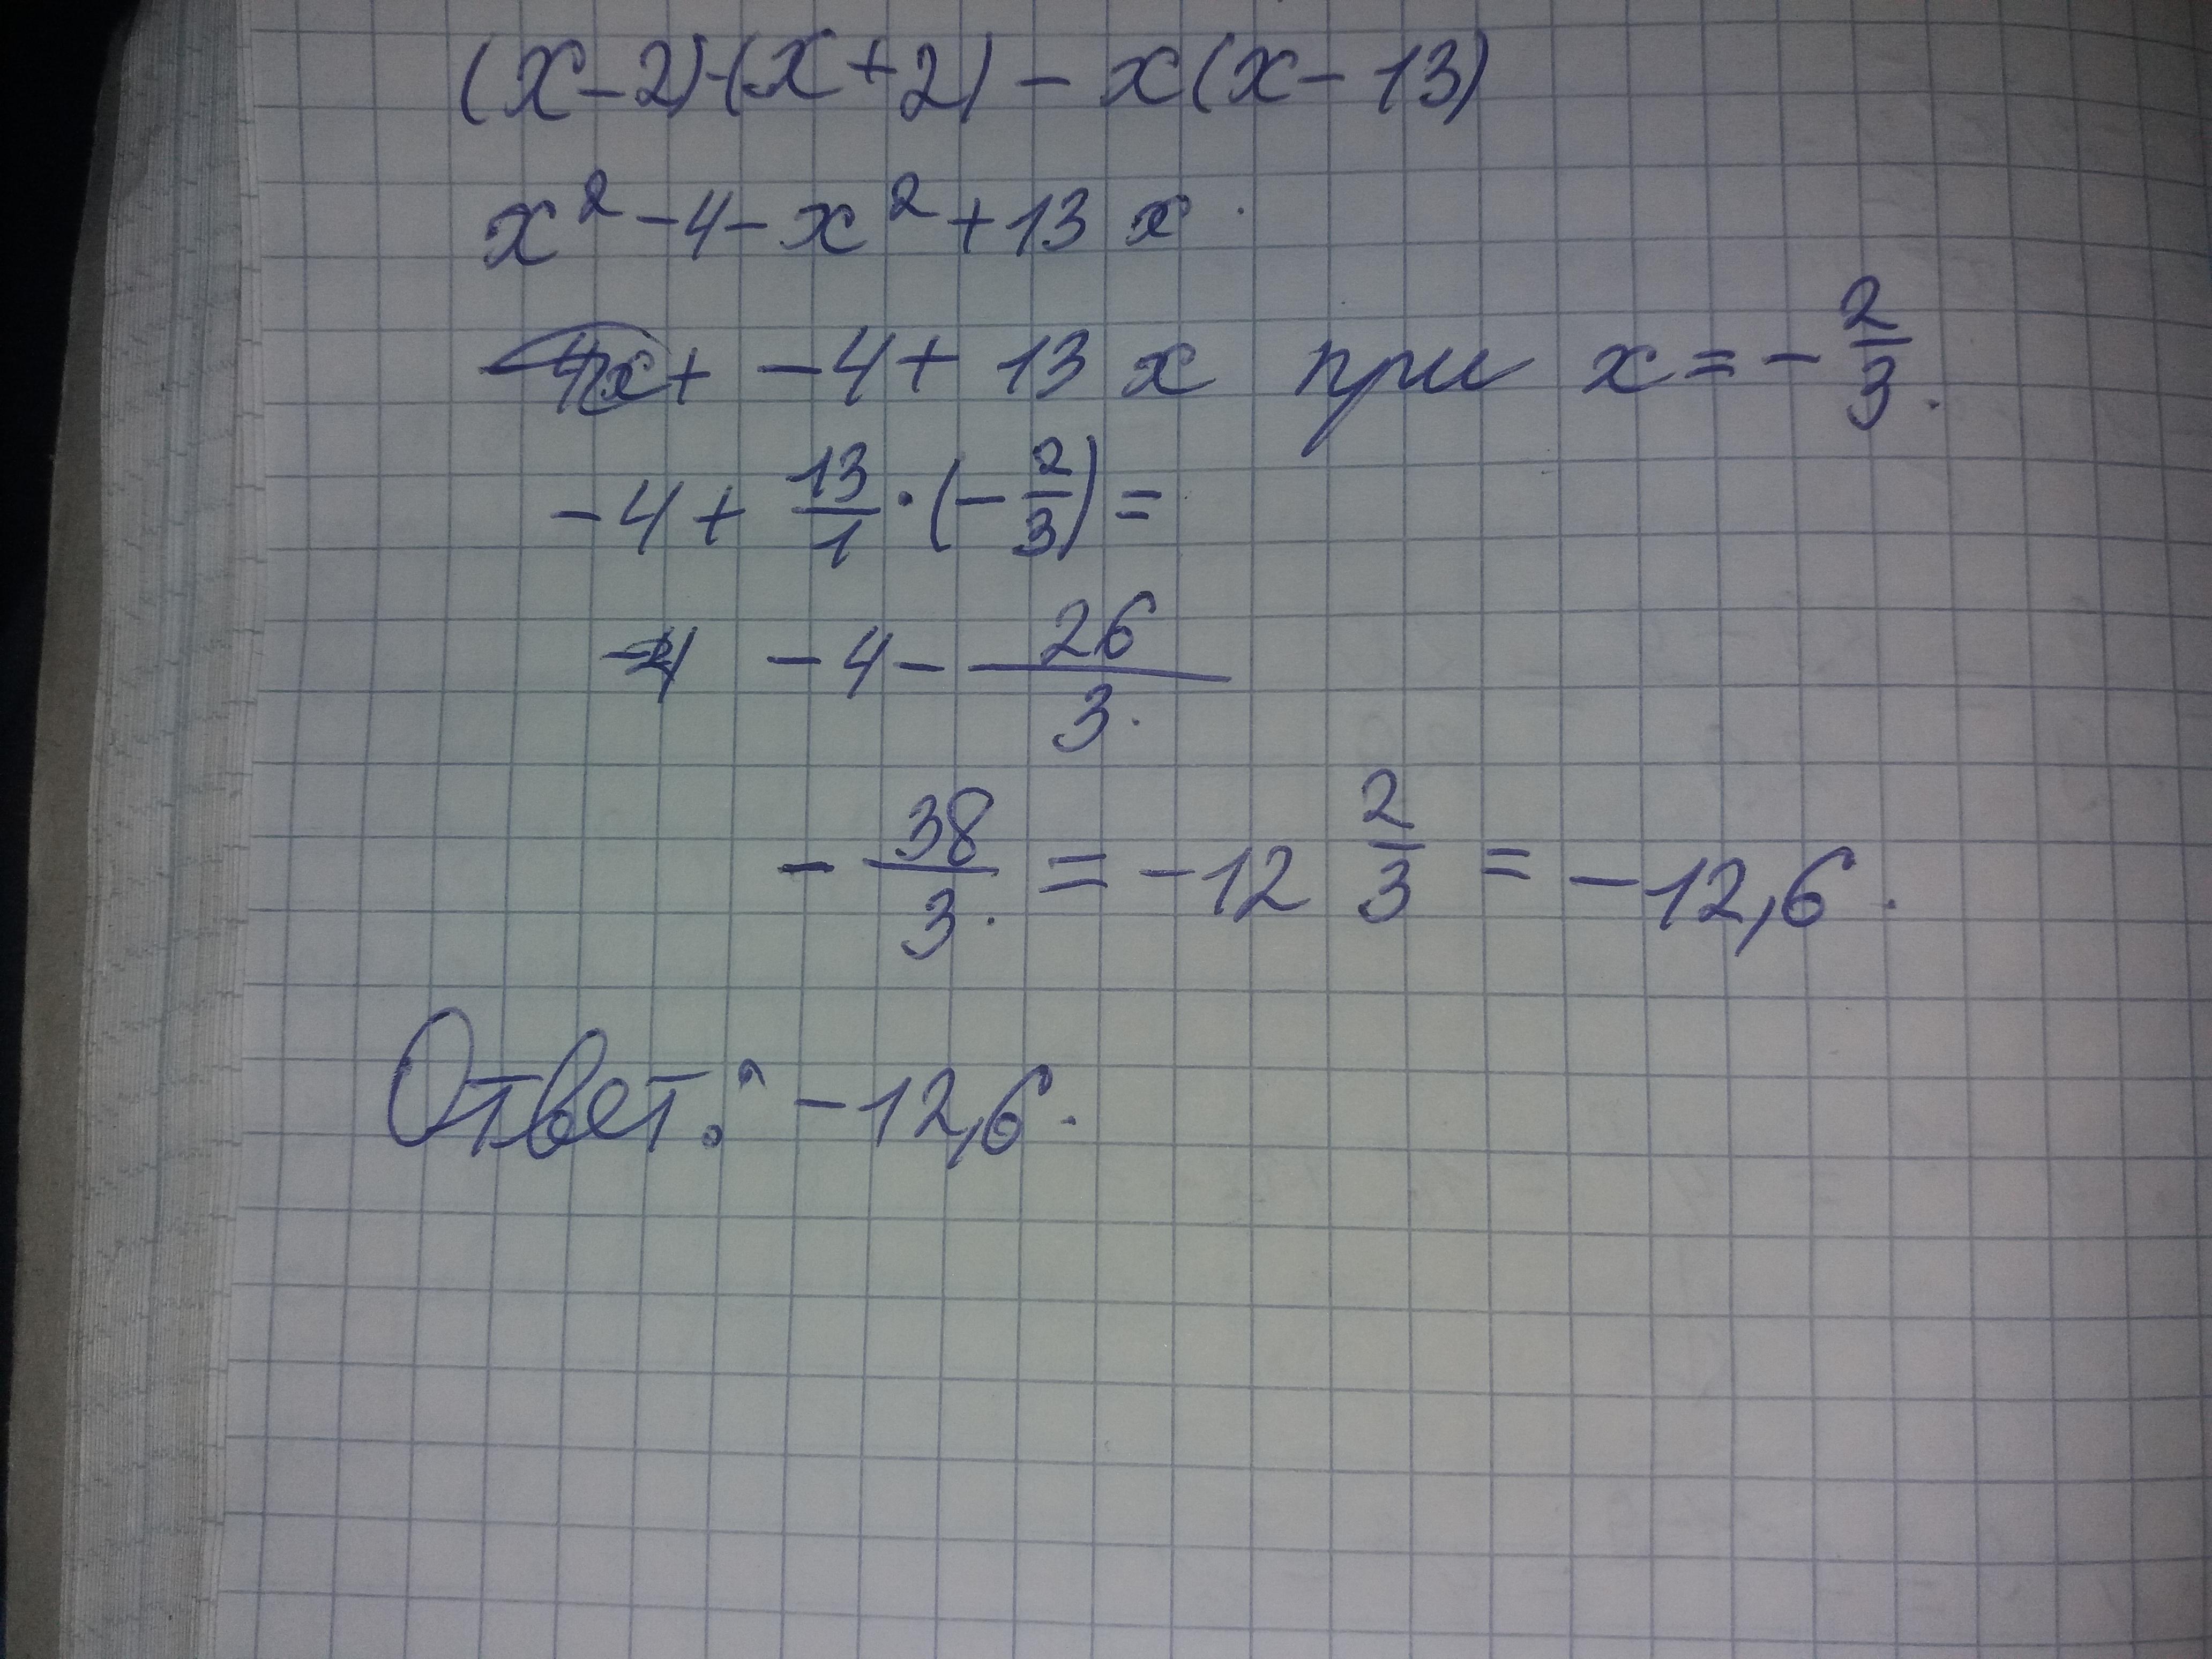 (x-2)·(x+2)-x(x-13)
x²-4-x²+13x
-4+13x при x=-2/3.
-4+13/1·(-2/3)=
-4-26/3.
-38/3.=-12 2/3=-12,6.
Ответ: -12,6.